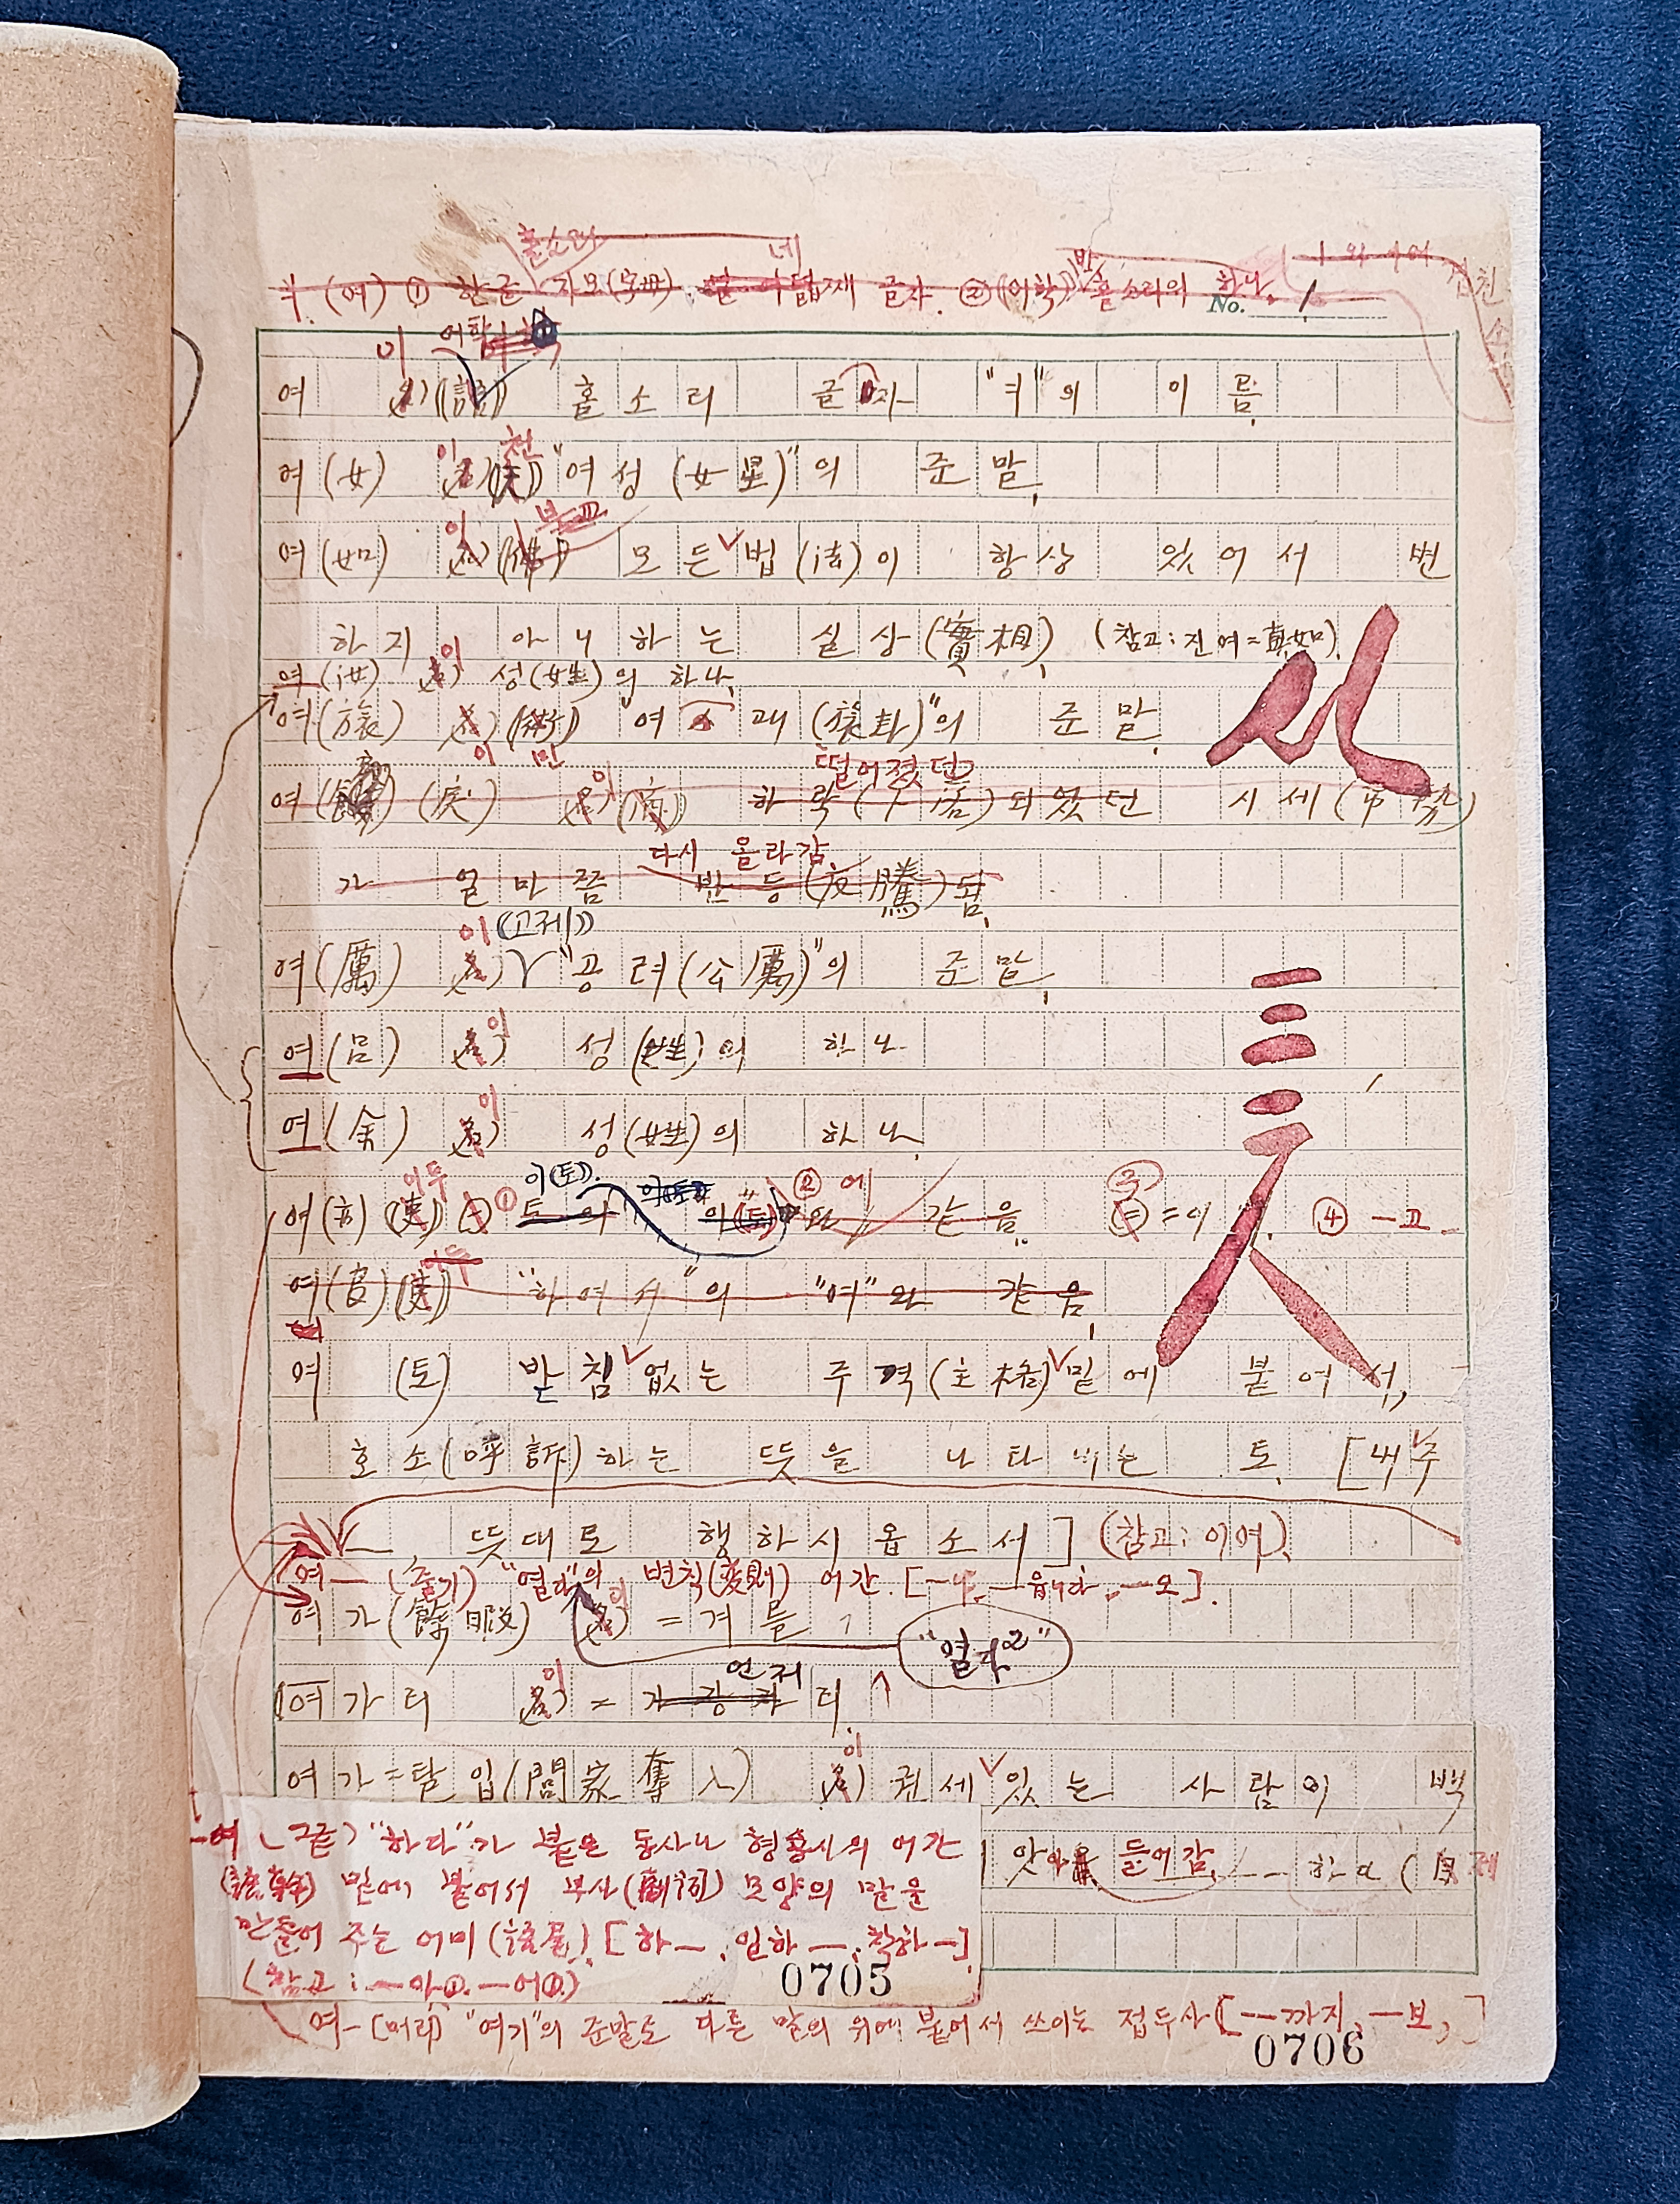 홀소리 네
ㅕ (여) ① 한글 자모(字母) 열 여덟째 글자. ② (어학) 홀소리의 하나.
No. 1
이 어학
여 名) (語) 홀소리 글자 "ㅕ"의 이름.
이 천
여(女) 名) (天) "여성(女星)"의 준말.
이 불교
여(如) 名) (佛) 모든 법(法)이 항상 있어서 변
하지 아니하는 실상(實相). (참고: 진여=眞如).
이
여(汝) 名) 성(姓)의 하나.
여(旅) 名) (術) "여괘(旅卦)"의 준말.
이 민
떨어졌던
여 名) 하락(下落)되었던 시세(市勢)
다시 올라감.
가 얼마쯤 반등(反騰)됨.
이 (고제)
여(厲) 名) "공려(公厲)"의 준말.
이
여(呂) 名) 성(姓)의 하나.
이
여(余) 名) 성(姓)의 하나.
이두 이(토). ② 에
여(亦) (吏) ① 토의 의(토)와 같음. ③ =이. ④ —고
이두
여 (吏) "하여서"의 "여"와 같음.
여 (토) 받침 없는 주격(主格) 밑에 붙어서,
호소(呼訴)하는 뜻을 나타내는 토. [내 주
— 뜻대로 행하시옵소서] (참고: 이여).
여— (줄기) "열다"의 변칙(変則) 어간. [—니. —읍니다. —오].
여가(餘暇) 名) =겨를.
"열다2"
이 언저
여가리 名) = 가장자리.
이
여가=탈입(閭家奪入) 名) 권세 있는 사람이 백
들어감.
—여 (끝) "하다"가 붙은 동사나 형용사의 어간
(語幹) 밑에 붙어서 부사(副詞) 모양의 말을
만들어 주는 어미(語尾). [하—. 일하—. 착하—].
(참고: —아①. —어①)
0705
여— [머리] "여기"의 준말로 다른 말의 위에 붙어서 쓰이는 접두사 [—까지, —보,]
0706